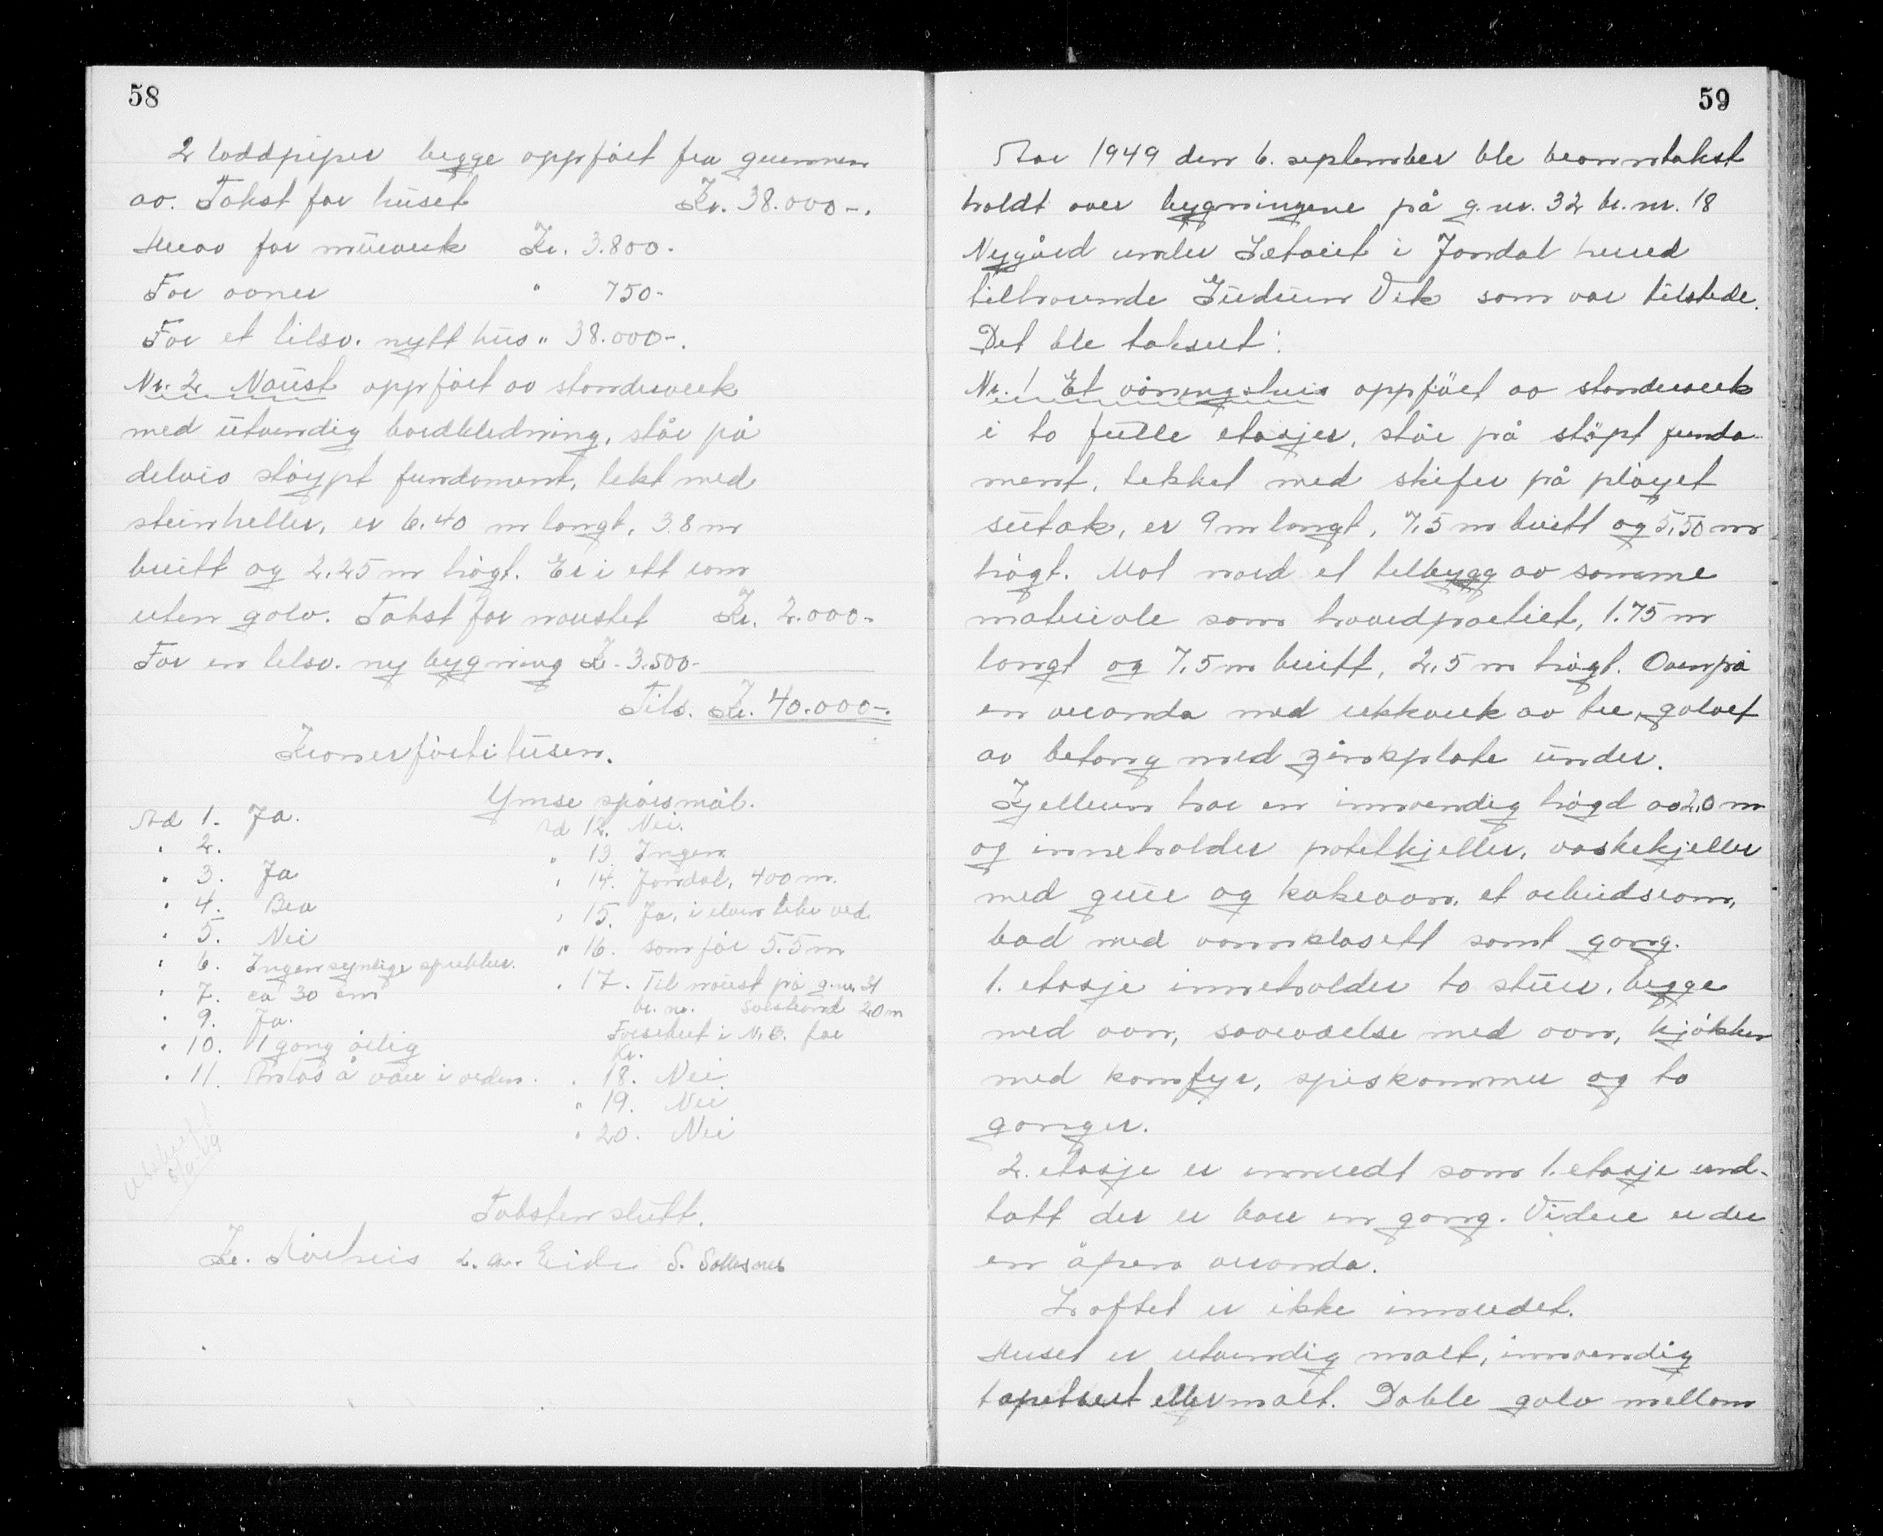 58
2 loddpiper begge oppført fra grunnen
av. Takst for huset Kr. 38.000-.
Herav for murverk Kr. 3.800-
For ovner " 750-
For et tilsv. nytt hus " 38.000-.
Nr. 2 Naust oppført av standerverk
med utvendig bordkledning, står på
delvis støypt fundament, tekt med
steinheller, er 6.40 m langt, 3.8 m
breitt og 2.25 m høgt. Er i ett rom
uten golv. Takst for naustet Kr. 2.000-
For en tilsv. ny bygning Kr. 3.500-
Tils. Kr. 40.000-.
Kroner førti tusen.
Ymse spørsmål.
Ad 1. Ja.
" 2.
" 3. Ja
" 4. Bra
" 5. Nei
" 6. Ingen synlige sprekker.
" 7. ca 30 cm
" 9. Ja.
" 10. 1 gang årlig
" 11. Antas å være i orden.
Ad 12. Nei.
" 13. Ingen
" 14. Jondal, 400 m.
" 15. Ja, i elven like ved.
" 16. som før 5.5 m
" 17. Til naust på g.nr. 31
br. nr. Solstrand 20 m
Forsikret i N.B. for
Kr.
" 18. Nei
" 19. Nei
" 20. Nei
Utskrift
Taksten slutt.
Kr. Aarhus L. A. Eide S. Solesnes
59
Aar 1949 den 6. september ble branntakst
holdt over bygningene på g.nr. 32 br.nr. 18
Nygård under Sætveit i Jondal herred
tilhørende Gudrun Vik som var tilstede.
Det ble taksert:
Nr. 1 Et våningshus oppført av standerverk
i to fulle etasjer, står på støpt funda-
ment, tekket med skifer på pløyet
sutak, er 9 m langt, 7,5 m breitt og 5,50 m
høgt. Mot nord et tilbygg av samme
materiale som hovedpartiet, 1.75 m
langt og 7,5 m breitt, 2,5 m høgt. Ovenpå
en veranda med rekkverk av tre, golvet
av betong med zinkplate under.
Kjelleren har en innvendig høgd av 2,0 m
og inneholder potetkjeller, vaskekjeller
med grue og kakeovn, et arbeidsrom,
bad med vannklosett samt gang.
1. etasje inneholder to stuer, begge
med ovn, soveværelse med ovn, kjøkken
med komfyr, spiskammer og to
ganger.
2. etasje er innredt som 1. etasje und-
tatt der er bare en gang. Videre er der
en åpen veranda.
Loftet er ikke innredet.
Huset er utvendig malt, innvendig
tapetsert eller malt. Doble golv mellom